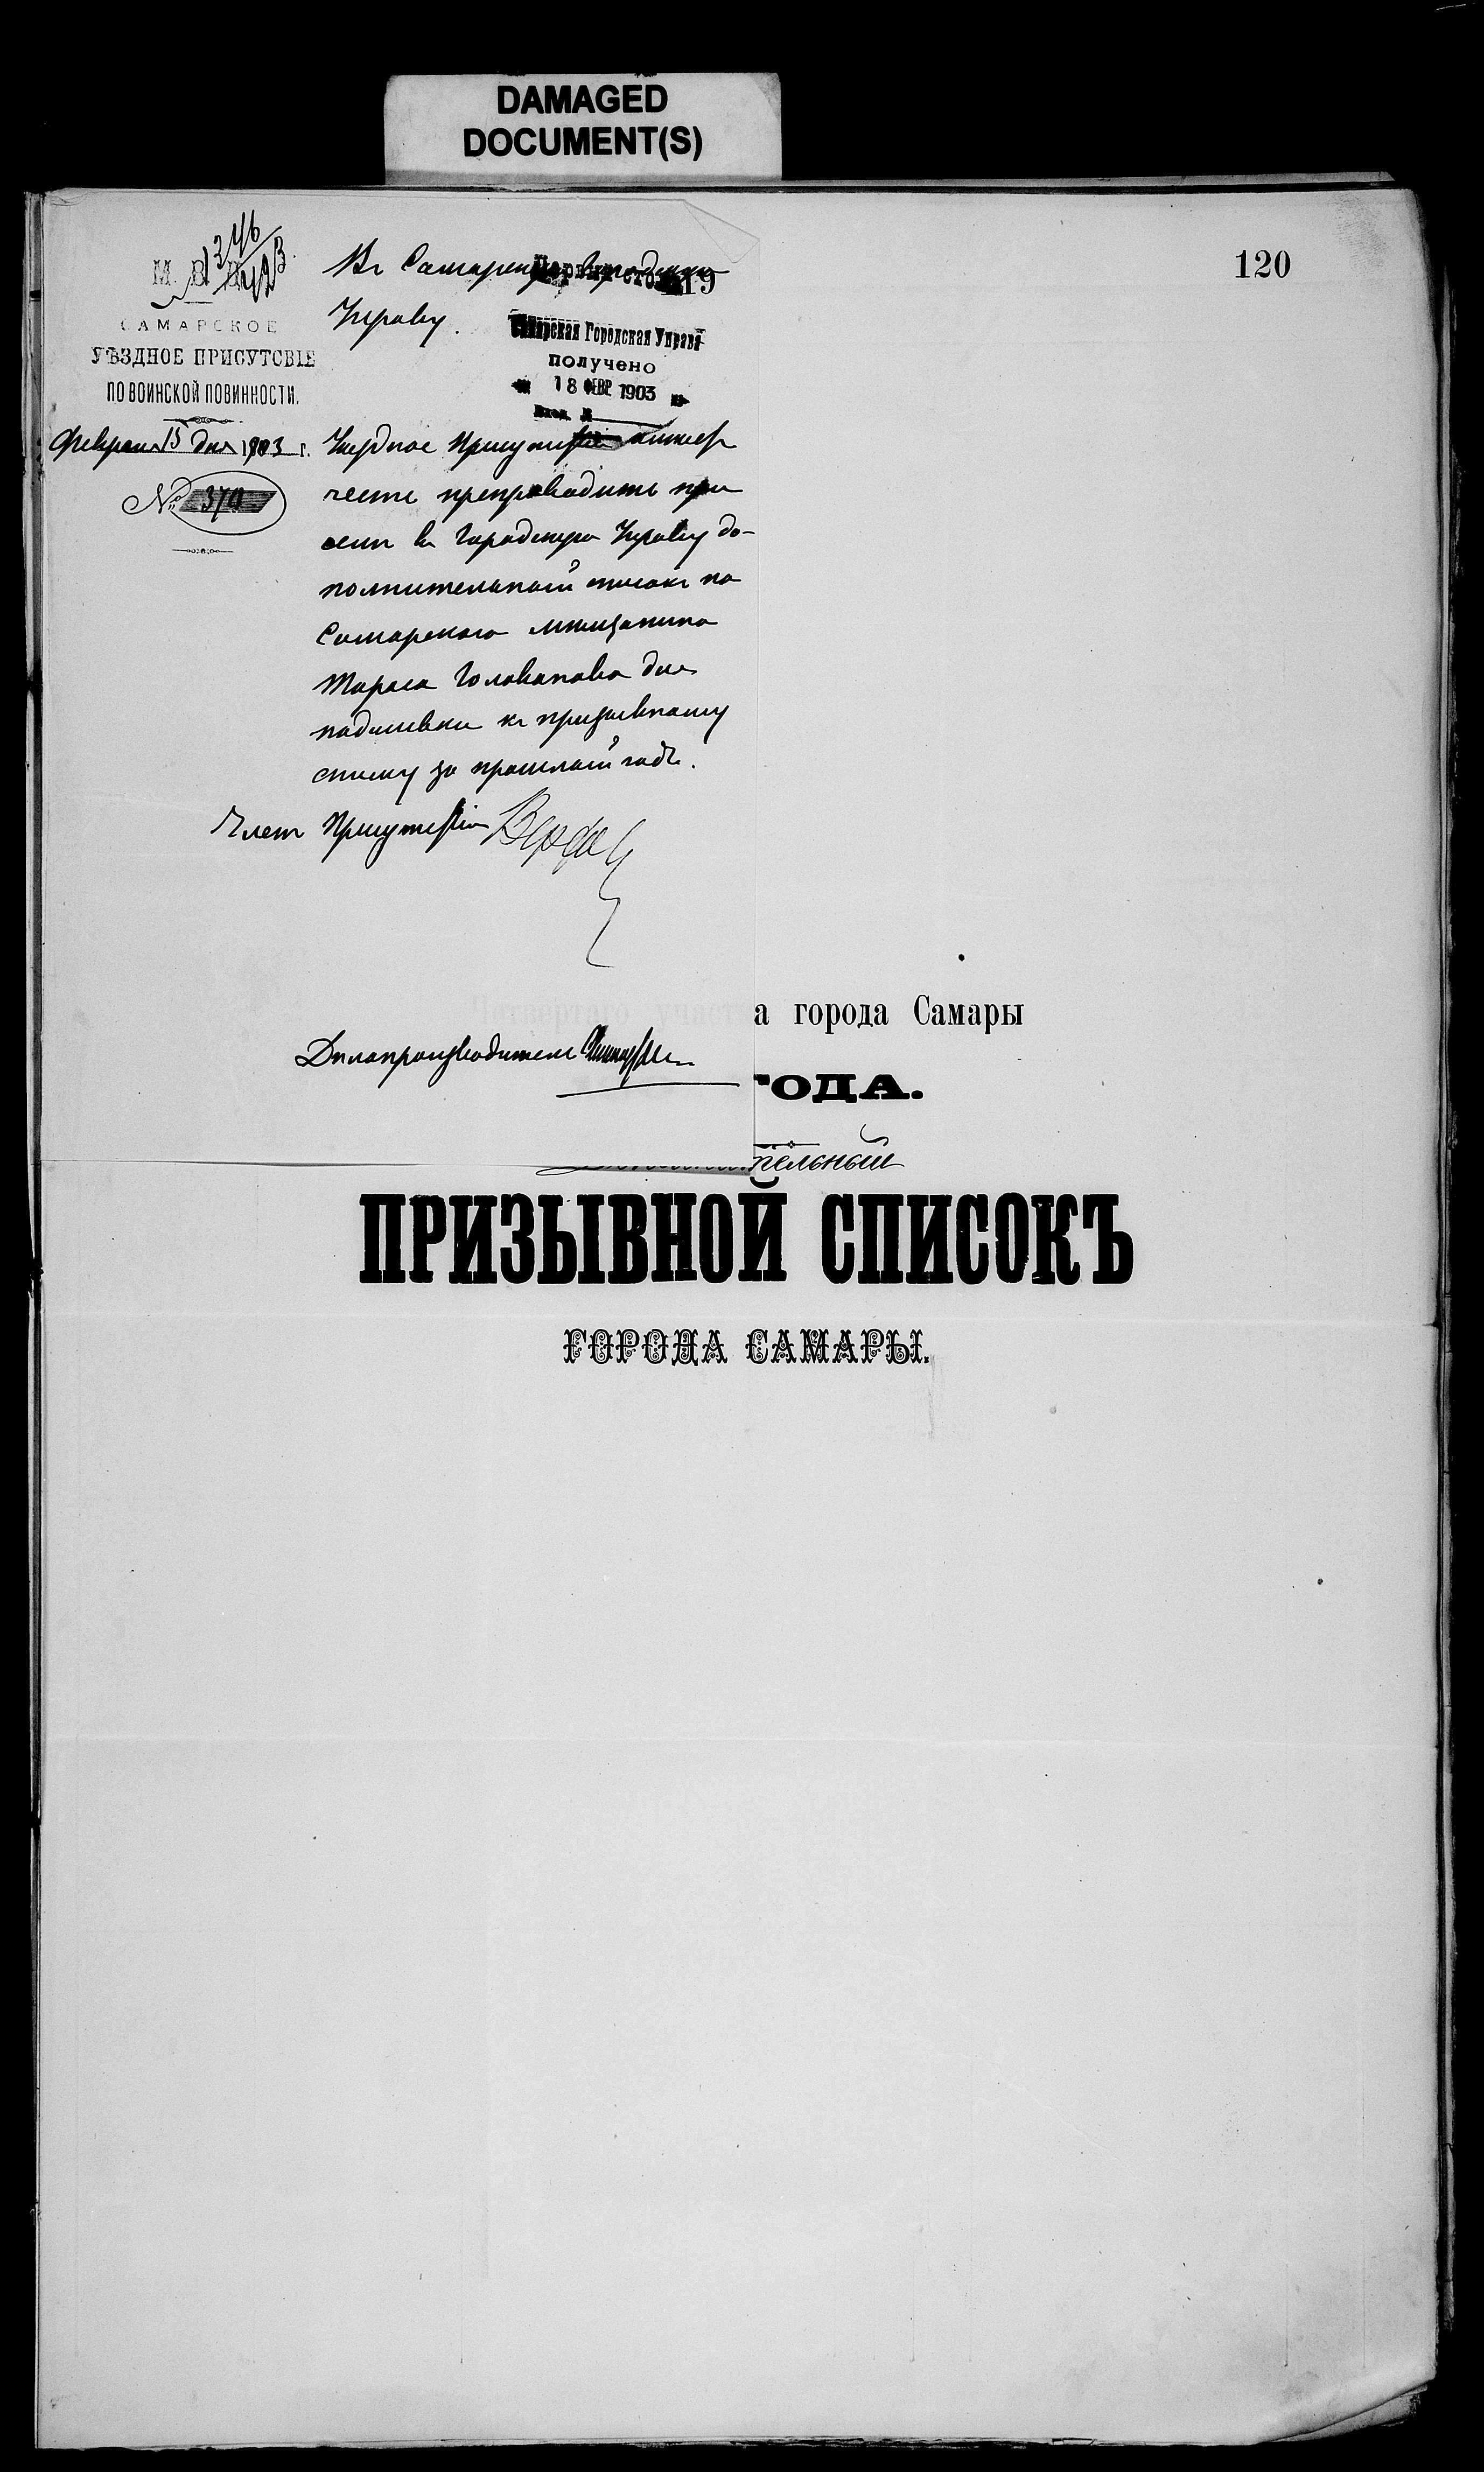 DAMAGED
DOCUMENT(S)
120
1346
М. В. Д.
САМАРСКОЕ
УѢЗДНОЕ ПРИСУТСВІЕ
ПО ВОИНСКОЙ ПОВИННОСТИ.
Февраля 15 дня 1903 г.
№ 370
Въ Самарскую Городскую
119
Управу.
Самарская Городская Управа
получено
18 ФЕВР 1903
Вход. №
Уѣздное Присутствіе имѣетъ
честь препроводить при
семъ въ Городскую Управу до-
полнительный списокъ на
Самарскаго мѣщанина
Тараса Голованова для
подшивки къ призывному
списку за прошлый годъ.
Членъ Присутствія
Четвертаго участка города Самары
Дѣлопроизводитель
ГОДА.
тельный
ПРИЗЫВНОЙ СПИСОКЪ
ГОРОДА САМАРЫ.